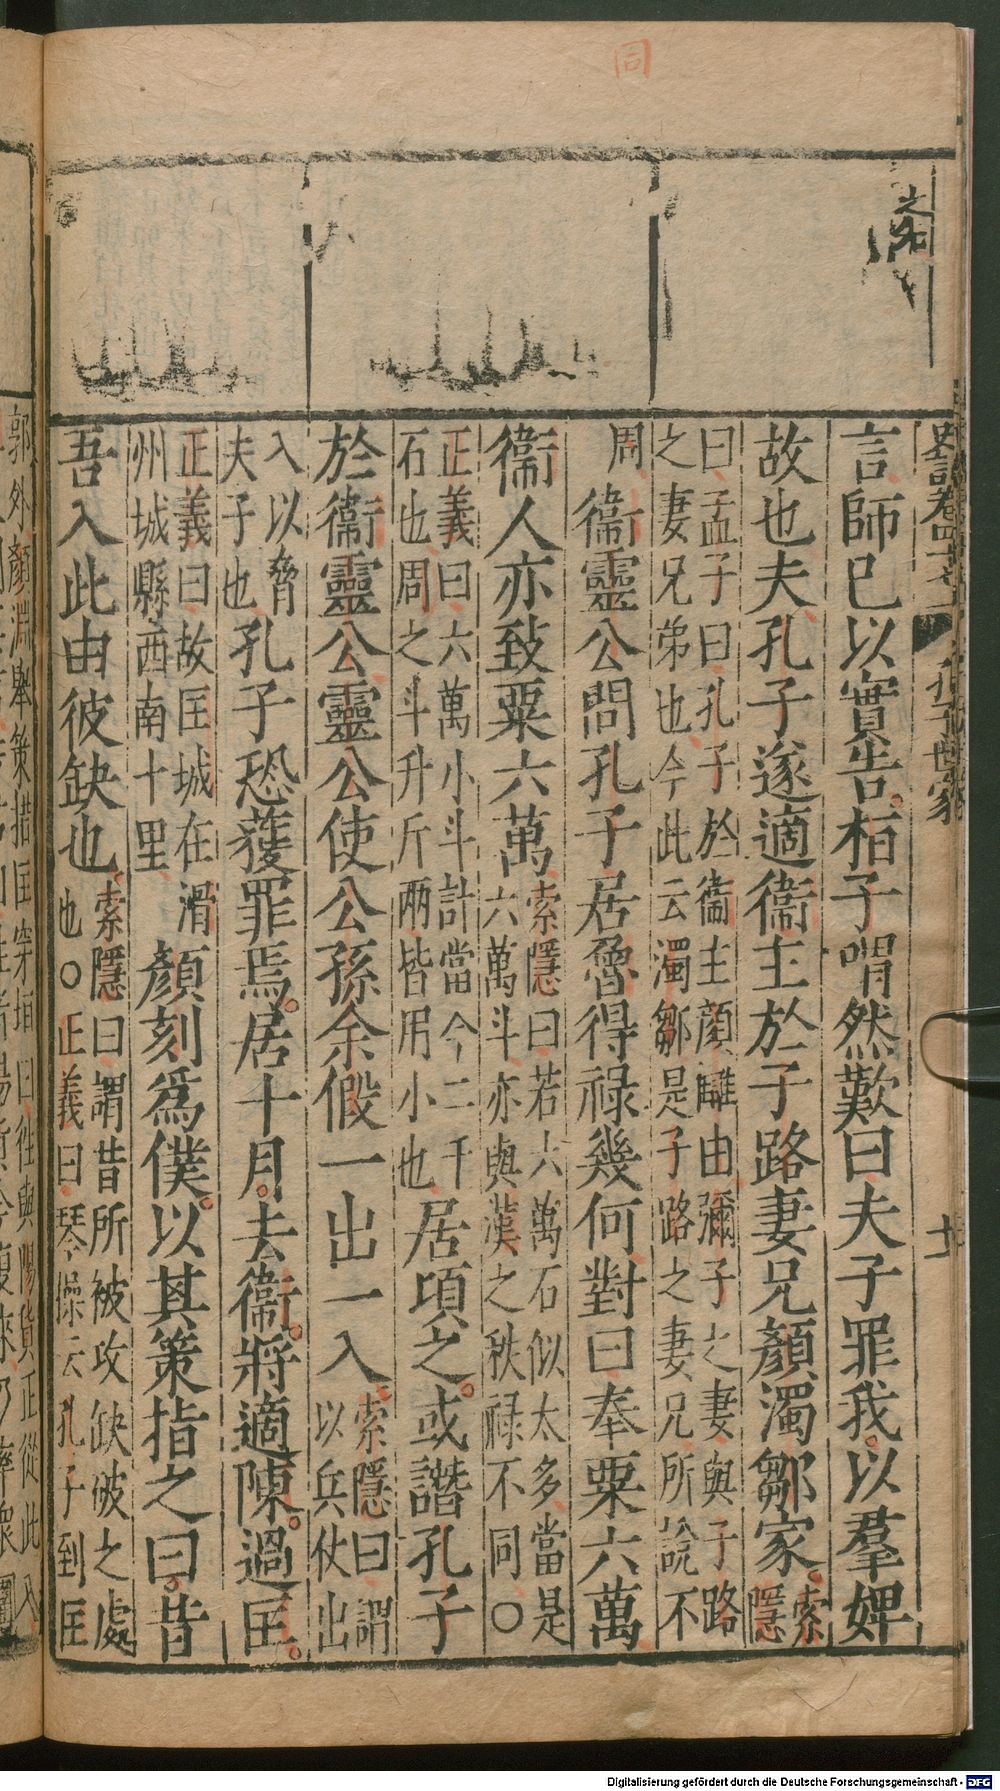 同
史記卷四十七
孔子世家
十
言師已以實告桓子喟然歎曰夫子罪我以羣婢
故也夫孔子遂適衞主於子路妻兄顏濁鄒家索隱
曰孟子曰孔子於衞主顏讎由彌子之妻與子路
之妻兄弟也今此云濁鄒是子路之妻兄所說不
同
衞靈公問孔子居魯得祿幾何對曰奉粟六萬
衞人亦致粟六萬索隱曰若六萬石似太多當是
六萬斗亦與漢之秩祿不同○
正義曰六萬小斗計當今二千
石也周之斗升斤兩皆用小也居頃之或譖孔子
於衞靈公靈公使公孫余假一出一入索隱曰謂
以兵仗出
入以脅
夫子也孔子恐獲罪焉居十月去衞將適陳過匡
正義曰故匡城在滑
州城縣西南十里顏刻爲僕以其策指之曰昔
吾入此由彼缺也索隱曰謂昔所被攻缺破之處
也○正義曰琴操云孔子到匡
郭外顏淵舉策指匡穿垣曰往與陽貨正從此入
Digitalisierung gefördert durch die Deutsche Forschungsgemeinschaft - DFG